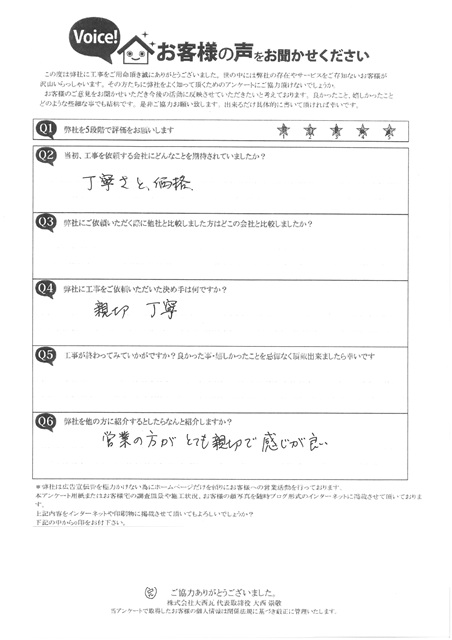 Voice!
お客様の声をお聞かせください
この度は弊社に工事をご用命頂き誠にありがとうございました。世の中には弊社の存在やサービスをご存知ないお客様が
沢山いらっしゃいます。その方たちに弊社をよく知って頂くためのアンケートにご協力頂けないでしょうか。
お客様のご意見をお聞かせいただき今後の活動に反映させていただきたいと考えております。良かったこと、嬉しかったこと
どのような些細な事でも結構です。是非ご協力お願い致します。出来るだけ具体的に書いて頂ければ幸いです。
Q1 弊社を5段階で評価をお願いします 1 2 3 4 5
Q2 当初、工事を依頼する会社にどんなことを期待されていましたか?
丁寧さと、価格、
Q3 弊社にご依頼いただく際に他社と比較しました方はどこの会社と比較しましたか?
Q4 弊社に工事をご依頼いただいた決め手は何ですか?
親切 丁寧
Q5 工事が終わってみていかがですか?良かった事・嬉しかったことを忌憚なく
Q6 弊社を他の方に紹介するとしたらなんと紹介しますか?
営業の方がとても親切で感じが良い
*弊社は広告宣伝費を極力かけない為にホームページだけを頼りにお客様への営業活動を行っております。
本アンケート用紙またはお客様宅の調査風景や施工状況、お客様の顔写真を随時ブログ形式のインターネットに掲載させて頂いております。
上記内容をインターネットや印刷物に掲載させて頂いてもよろしいでしょうか?
下記の中から○印をお付け下さい。
ご協力ありがとうございました。
株式会社大西瓦 代表取締役 大西
当アンケートで取得したお客様の個人情報は関係法規に基づき厳正に管理いたします。